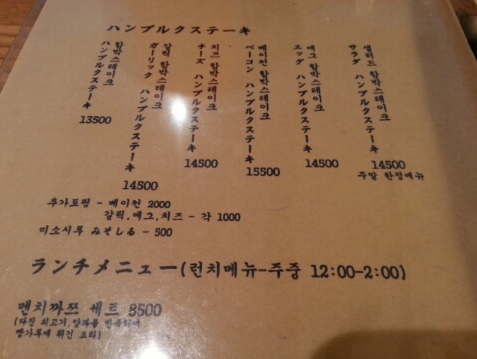 ハンブルクステーキ
함박스테이크
ハンブルクステーキ
13500
갈릭 함박스테이크
ガーリック ハンブルクステーキ
14500
치즈 함박스테이크
チーズ ハンブルクステーキ
14500
베이컨 함박스테이크
ベーコン ハンブルクステーキ
15500
에그 함박스테이크
エッグ ハンブルクステーキ
14500
샐러드 함박스테이크
サラダ ハンブルクステーキ
14500
주말 한정메뉴
추가토핑 - 베이컨 2000
갈릭.에그.치즈 - 각 1000
미소시루 みそしる - 500
ランチメニュー(런치메뉴-주중 12:00-2:00)
멘치까쯔 세트 8500
(다진 쇠고기,양파를 반죽하여
빵가루에 튀긴 요리)